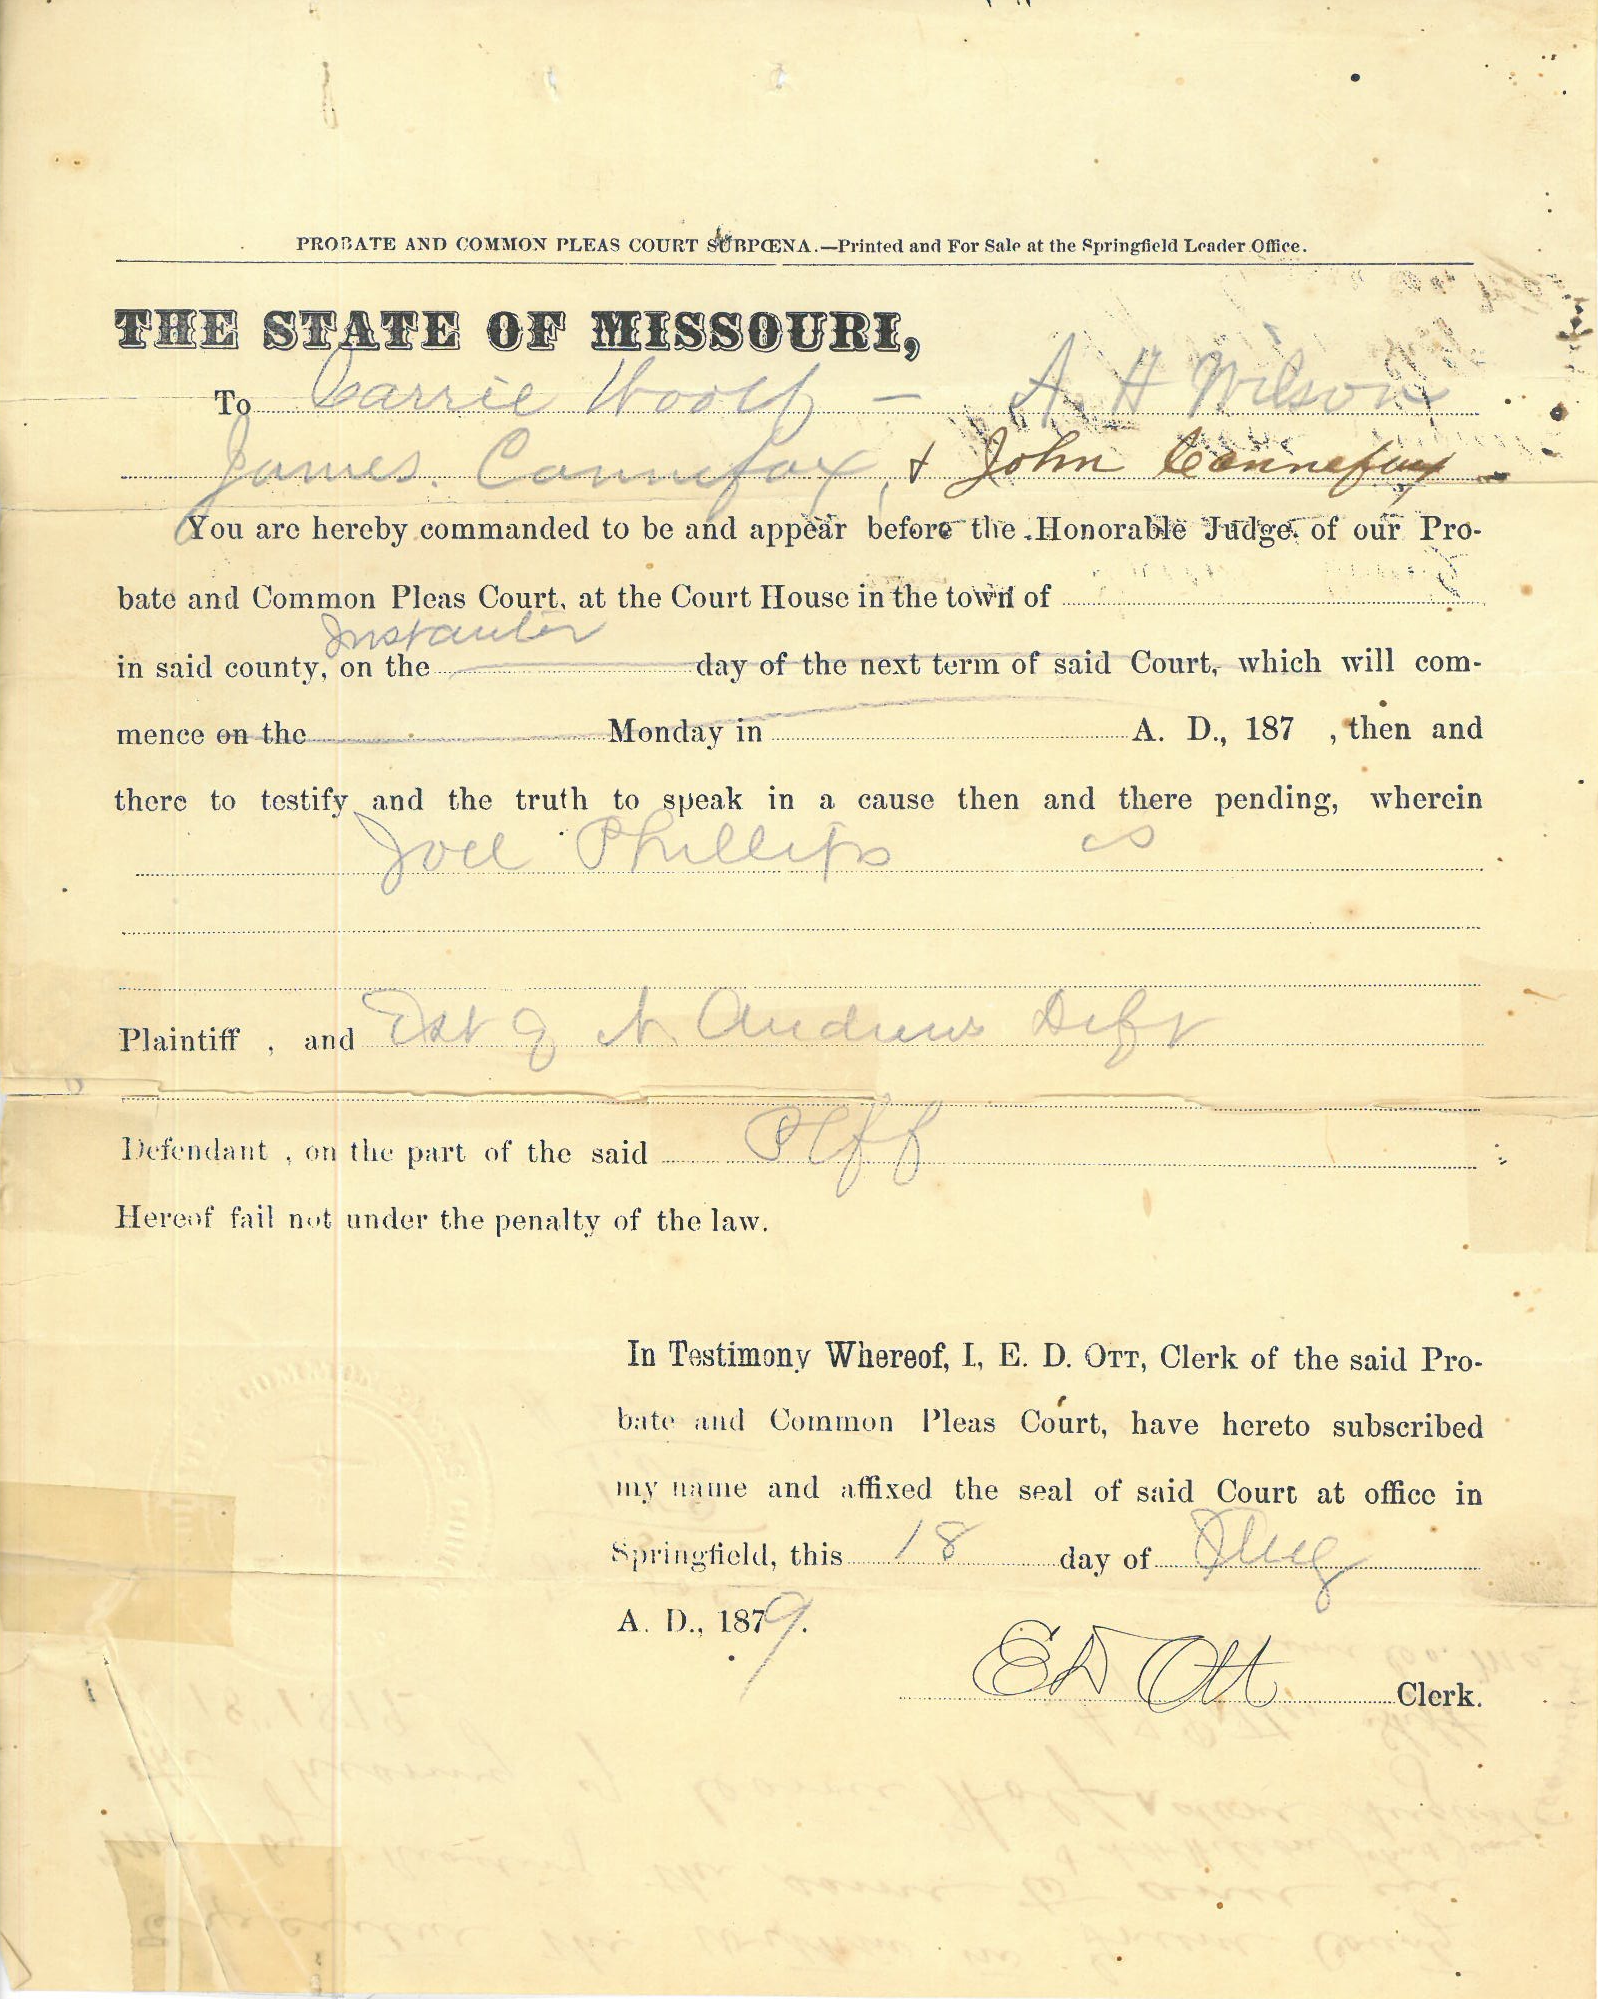 PROBATE AND COMMON PLEAS COURT SUBPŒNA.—Printed and For Sale at the Springfield Leader Office.
THE STATE OF MISSOURI,
To Carrie Woolf — A. H Wilson
James Cannefax, & John Cannefax
You are hereby commanded to be and appear before the Honorable Judge of our Pro-
bate and Common Pleas Court, at the Court House in the town of
Instanter
in said county, on the day of the next term of said Court, which will com-
mence on the Monday in A. D., 187 , then and
there to testify and the truth to speak in a cause then and there pending, wherein
Joel Phillips is
Plaintiff , and Est of N. Andrews Deft
Defendant , on the part of the said Plff
Hereof fail not under the penalty of the law.
In Testimony Whereof, I, E. D. OTT, Clerk of the said Pro-
bate and Common Pleas Court, have hereto subscribed
my name and affixed the seal of said Court at office in
Springfield, this 18 day of Aug
A. D., 1879.
E D Ott Clerk.